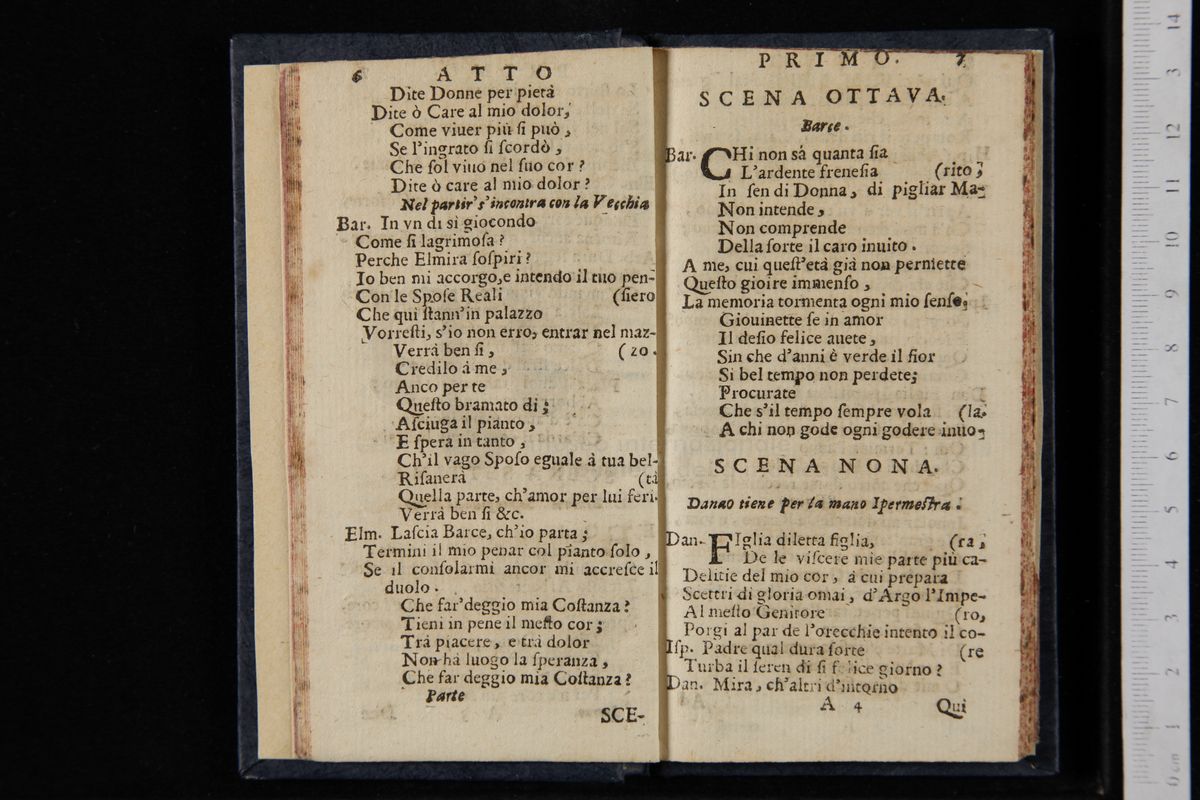 6 ATTO
Dite Donne per pietà
Dite ò Care al mio dolor,
Come viuer più ſi può,
Se l'ingrato ſi ſcordò,
Che ſol viuo nel ſuo cor?
Dite ò care al mio dolor?
Nel partir s'incontra con la Vecchia
Bar. In vn dì sì giocondo
Come ſi lagrimoſa?
Perche Elmira ſoſpiri?
Io ben mi accorgo, e intendo il tuo pen-
Con le Spoſe Reali (ſiero
Che qui ſtann'in palazzo
Vorreſti, s'io non erro, entrar nel maz-
Verrà ben ſi, (zo.
Credilo à me,
Anco per te
Queſto bramato dì;
Aſciuga il pianto,
E ſpera in tanto,
Ch'il vago Spoſo eguale à tua bel-
Riſanerà (tà
Quella parte, ch'amor per lui feri.
Verrà ben ſi &c.
Elm. Laſcia Barce, ch'io parta;
Termini il mio penar col pianto ſolo,
Se il conſolarmi ancor mi accreſce il
duolo.
Che far'deggio mia Coſtanza?
Tieni in pene il meſto cor;
Trà piacere, e trà dolor
Non hà luogo la ſperanza,
Che far deggio mia Coſtanza?
Parte
SCE-
PRIMO. 7
SCENA OTTAVA.
Barce.
Bar. CHi non sá quanta ſia
L'ardente freneſia (rito;
In ſen di Donna, di pigliar Ma-
Non intende,
Non comprende
Della ſorte il caro inuito.
A me, cui queſt'età già non permette
Queſto gioire immenſo,
La memoria tormenta ogni mio ſenſo;
Giouinette ſe in amor
Il deſio felice auete,
Sin che d'anni è verde il fior
Si bel tempo non perdete;
Procurate
Che s'il tempo ſempre vola (la.
A chi non gode ogni godere inuo-
SCENA NONA.
Danao tiene per la mano Ipermeſtra.
Dan. FIglia diletta figlia, (ra;
De le viſcere mie parte più ca-
Delitie del mio cor, à cui prepara
Scettri di gloria omai, d'Argo l'Impe-
Al meſto Genitore (ro,
Porgi al par de l'orecchie intento il co-
Iſp. Padre qual dura ſorte (re
Turba il ſeren di ſi felice giorno?
Dan. Mira, ch'altri d'intorno
A 4 Qui